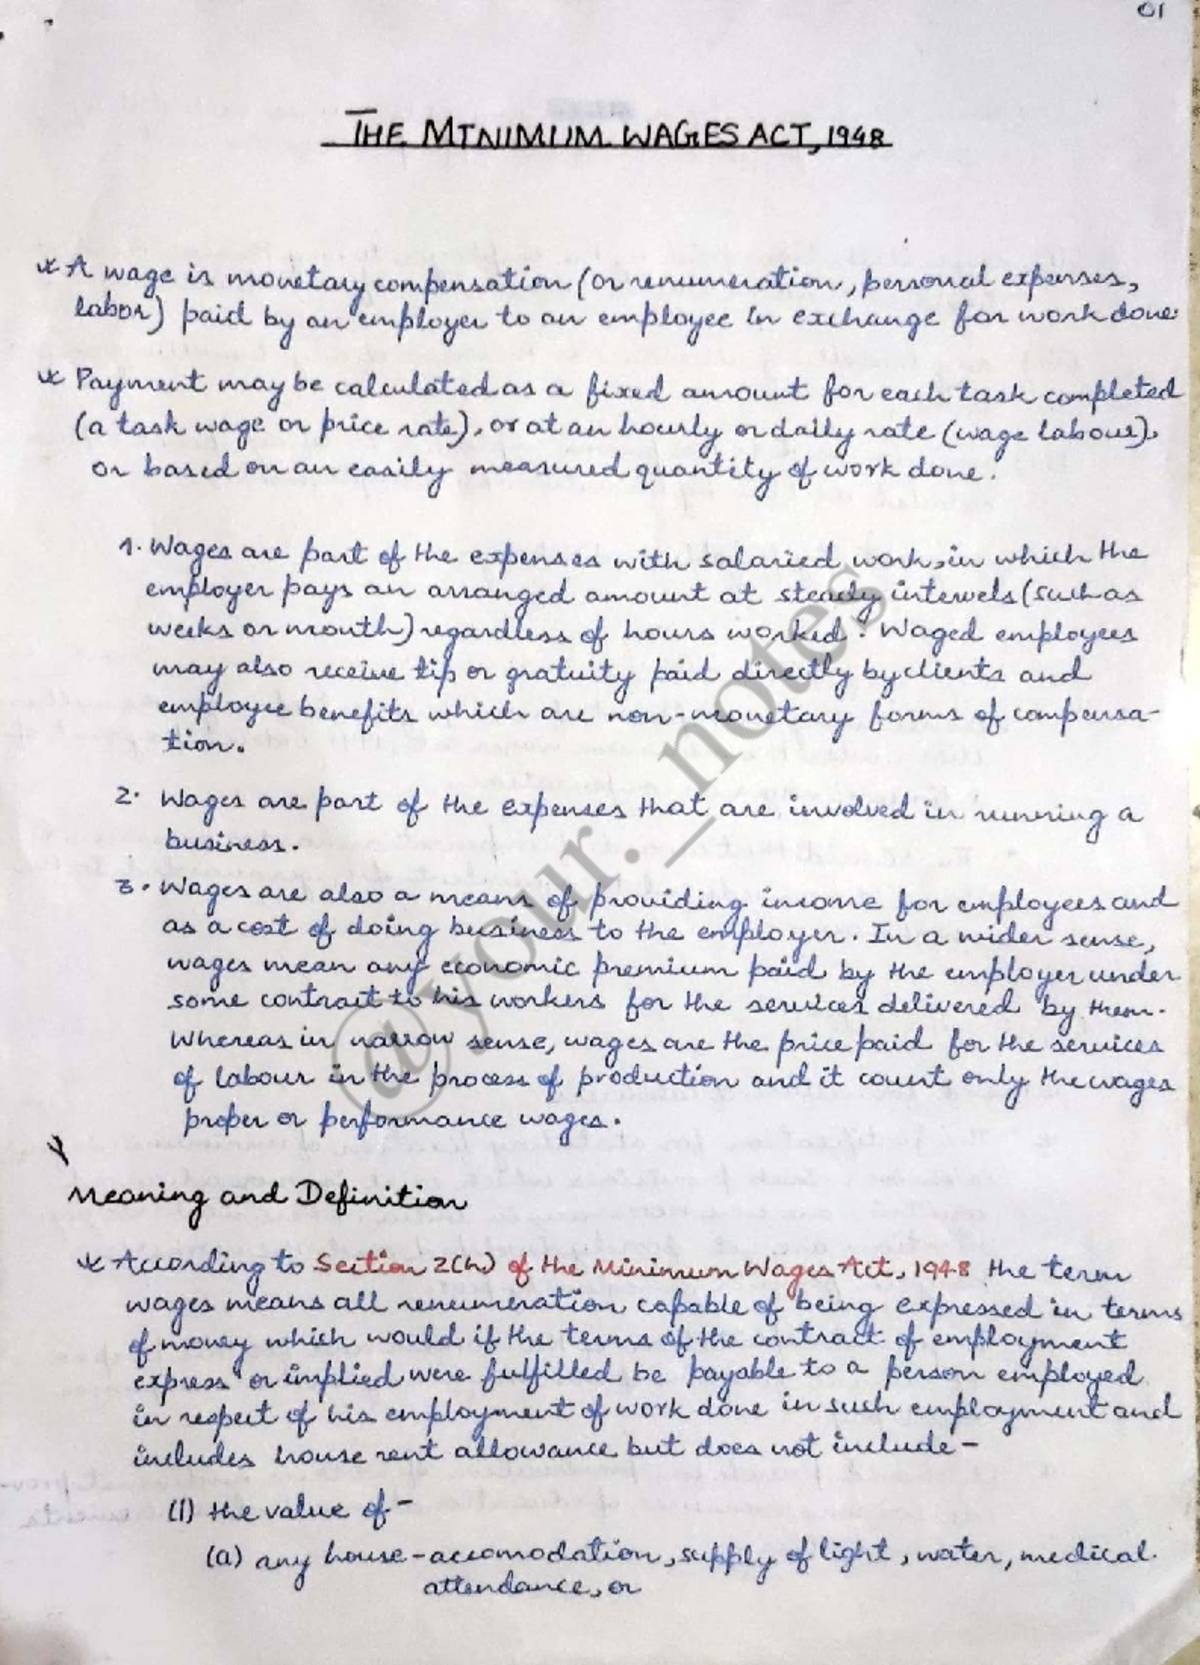 01
THE MINIMUM WAGES ACT, 1948
* A wage is monetary compensation (or renumeration, personal expenses,
labor) paid by an employer to an employee in exchange for work done.
* Payment may be calculated as a fixed amount for each task completed
(a task wage or price rate), or at an hourly or daily rate (wage labour),
or based on an easily measured quantity of work done.
1. Wages are part of the expenses with salaried work, in which the
employer pays an arranged amount at steady intervels (such as
weeks or month) regardless of hours worked. Waged employees
may also receive tip or gratuity paid directly by clients and
employee benefits which are non-monetary forms of compensa-
tion.
2. Wages are part of the expenses that are involved in running a
business.
3. Wages are also a means of providing income for employees and
as a cost of doing business to the employer. In a wider sense,
wages mean any economic premium paid by the employer under
some contract to his workers for the services delivered by them.
Whereas in narrow sense, wages are the price paid for the services
of labour in the process of production and it count only the wages
proper or performance wages.
Meaning and Definition
* According to Section 2(h) of the Minimum Wages Act, 1948 the term
wages means all renumeration capable of being expressed in terms
of money which would if the terms of the contract of employment
express or implied were fulfilled be payable to a person employed
in respect of his employment of work done in such employment and
includes house rent allowance but does not include -
(1) the value of -
(a) any house-accomodation, supply of light, water, medical
attendance, or
@your._notes